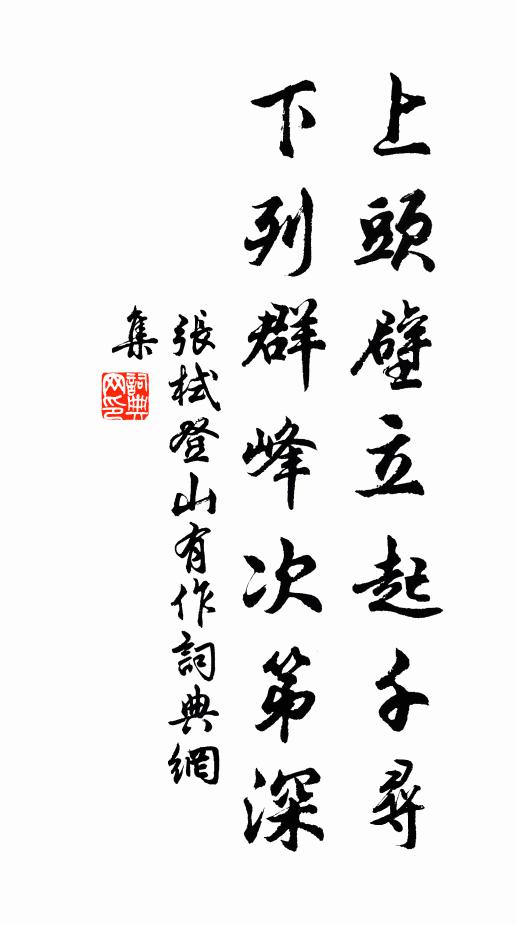 上頭壁立起千尋
下列群峰次第深
張栻登山有作詞典網
集
詞典
网印